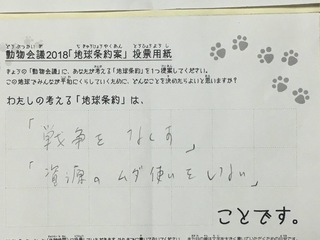 動物会議2018「地球条約案」投票用紙
きょうの「動物会議」に、あなたが考える「地球条約」を1つ提案してください。
この地球でみんなが平和にくらしていくために、どんなことを決めたらよいと思いますか?
わたしの考える「地球条約」は、
「戦争をなくす」
「資源のムダ使いをしない」
ことです。